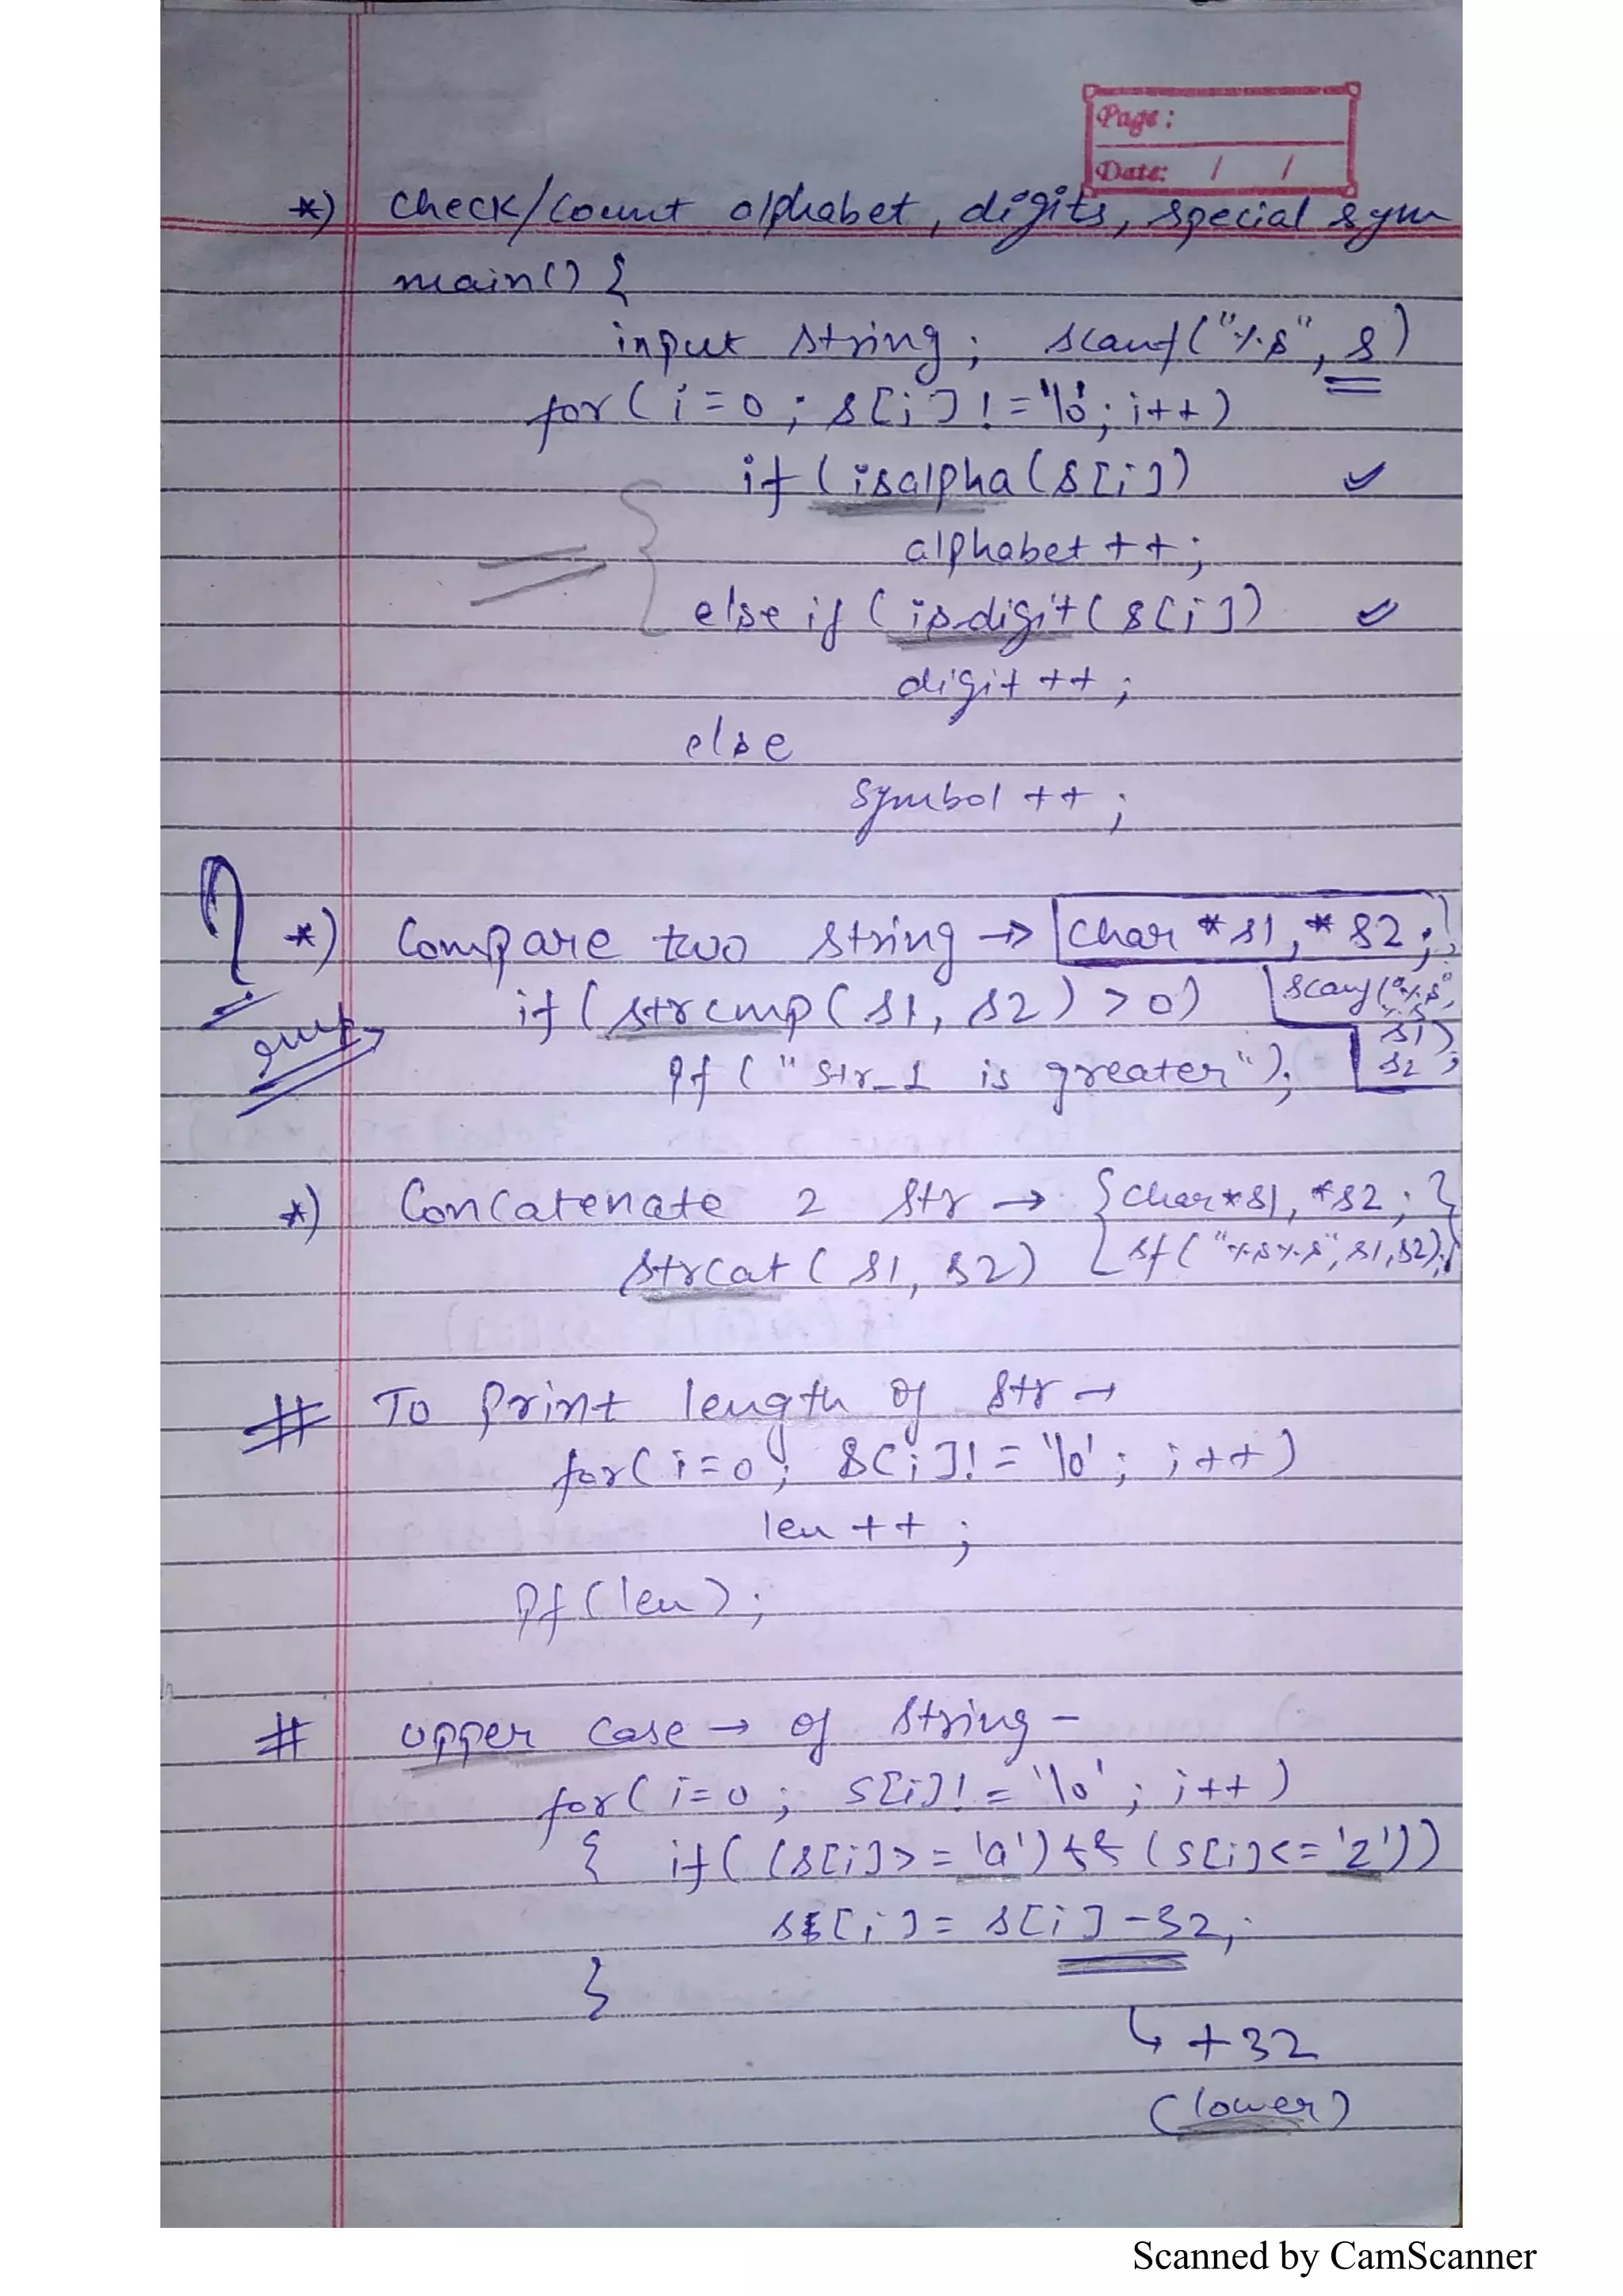 Page:
Date: / /
*) Check/Count alphabet, digits, special sym
main() {
input string; scanf("%s", s)
for(i=0; s[i]!='\0'; i++)
if(isalpha(s[i])
alphabet++;
else if(isdigit(s[i])
digit++;
else
symbol++;
*) Compare two string → char *s1, *s2;
if(strcmp(s1, s2)>0) scanf("%s%s",
s1,
s2);
pf("Str_1 is greater");
*) Concatenate 2 Str → {char*s1, *s2; }
strcat(s1, s2) sf("%s%s", s1,s2);
# To print length of str →
for(i=0; s[i]!='\0'; i++)
len++;
pf(len);
# upper case → of string -
for(i=0; s[i]!='\0'; i++)
{ if((s[i]>='a')&&(s[i]<='z'))
s[i]=s[i]-32;
}
↳ +32
(lower)
Scanned by CamScanner